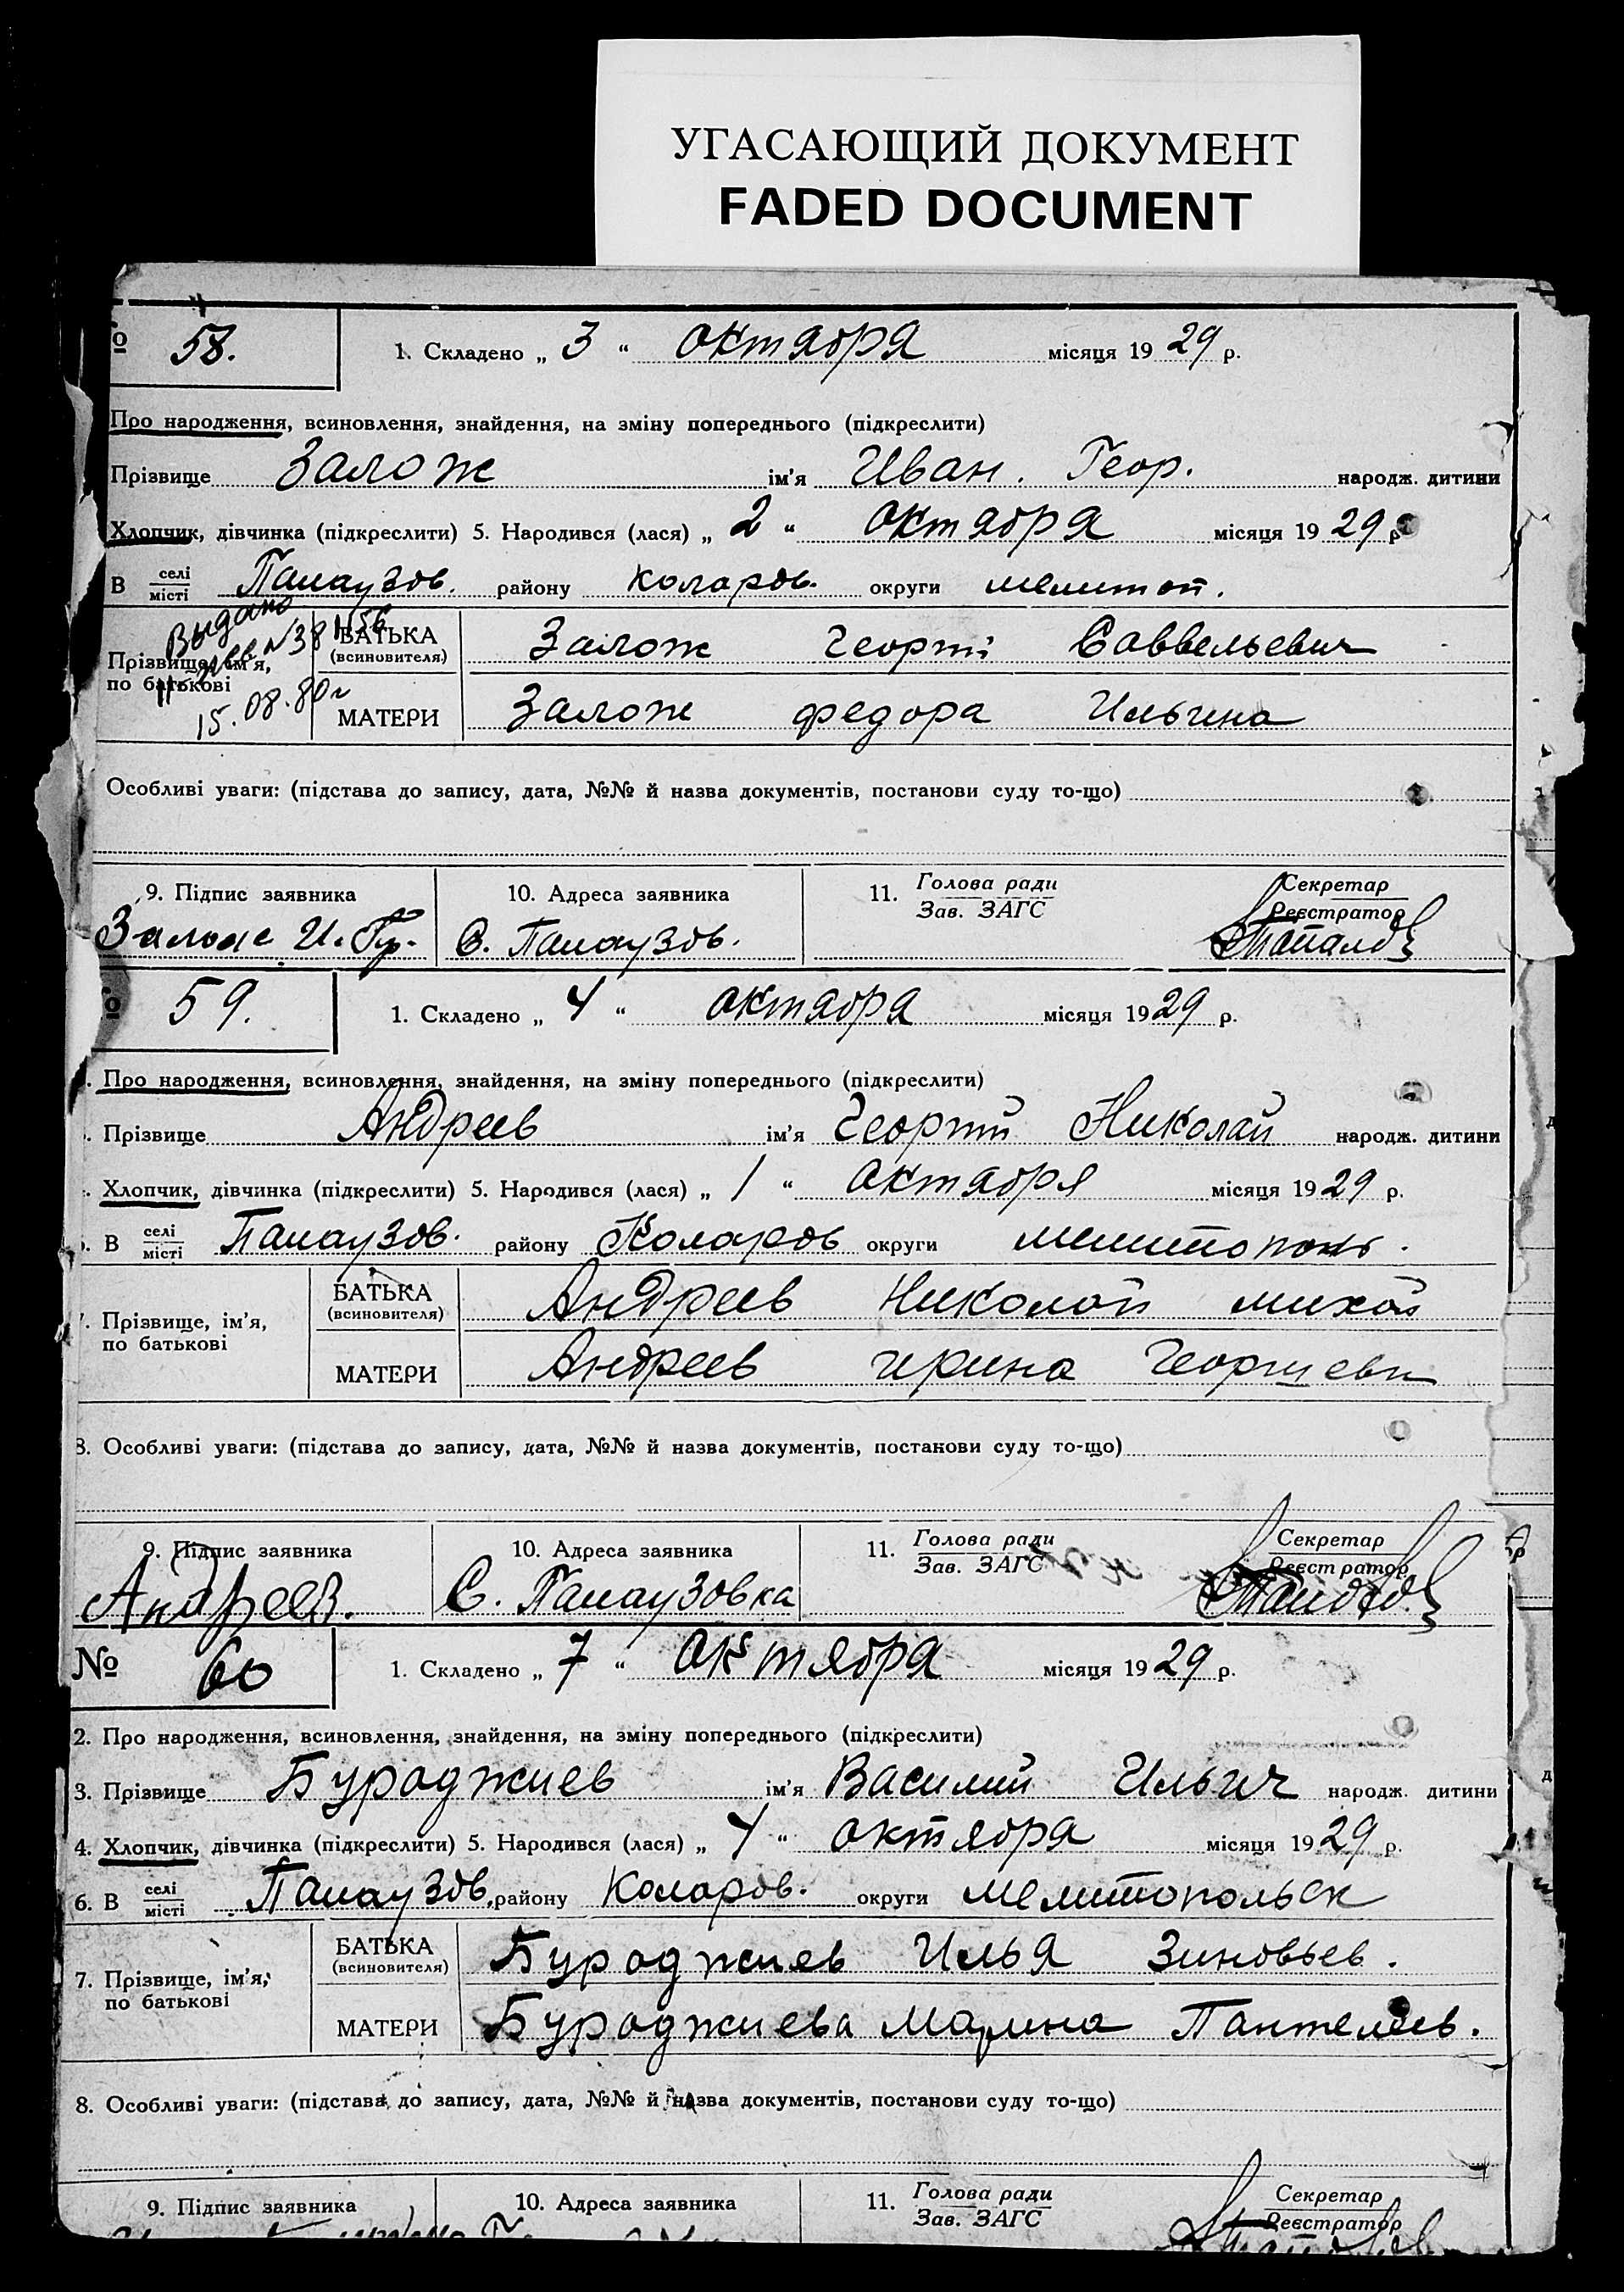 УГАСАЮЩИЙ ДОКУМЕНТ
FADED DOCUMENT
58. 1. Складено „ 3 “ октября місяця 19 29 р.
Про народження, всиновлення, знайдення, на зміну попереднього (підкреслити)
Прізвище Залож ім'я Иван. Геор. народж. дитини
Хлопчик, дівчинка (підкреслити) 5. Народився (лася) „ 2 “ октября місяця 19 29 р
В селі місті Палаузов. району Коларов. округи мелитоп.
Выдано
БАТЬКА (всиновителя) Залож Георгий Саввельевич
Прізвище, ім'я, по батькові
15. 08. 80г
МАТЕРИ Залож федора Ильична
Особливі уваги: (підстава до запису, дата, №№ й назва документів, постанови суду то-що)
9. Підпис заявника 10. Адреса заявника 11. Голова ради Зав. ЗАГС Секретар Реєстратор
С. Палаузов.
59. 1. Складено „ 4 “ октября місяця 19 29 р.
Про народження, всиновлення, знайдення, на зміну попереднього (підкреслити)
Прізвище Андреев ім'я Георгий Николай народж. дитини
Хлопчик, дівчинка (підкреслити) 5. Народився (лася) „ 1 “ октября місяця 19 29 р.
В селі місті Палаузов. району Коларов округи
7. Прізвище, ім'я, по батькові БАТЬКА (всиновителя) Андреев Николай михай
МАТЕРИ Андреев ирина Георгиевн
8. Особливі уваги: (підстава до запису, дата, №№ й назва документів, постанови суду то-що)
9. Підпис заявника 10. Адреса заявника 11. Голова ради Зав. ЗАГС Секретар Реєстратор
Андреев. С. Палаузовка
№ 60 1. Складено „ 7 “ октября місяця 19 29 р.
2. Про народження, всиновлення, знайдення, на зміну попереднього (підкреслити)
3. Прізвище Бураджиев ім'я Василий Ильич народж. дитини
4. Хлопчик, дівчинка (підкреслити) 5. Народився (лася) „ 4 “ октября місяця 19 29 р.
6. В селі місті Палаузов. району Коларов. округи Мелитопольск
7. Прізвище, ім'я, по батькові БАТЬКА (всиновителя) Бураджиев Илья Зиновьев.
МАТЕРИ Бураджиева Марина Пантелеев.
8. Особливі уваги: (підстава до запису, дата, №№ й назва документів, постанови суду то-що)
9. Підпис заявника 10. Адреса заявника 11. Голова ради Зав. ЗАГС Секретар Реєстратор